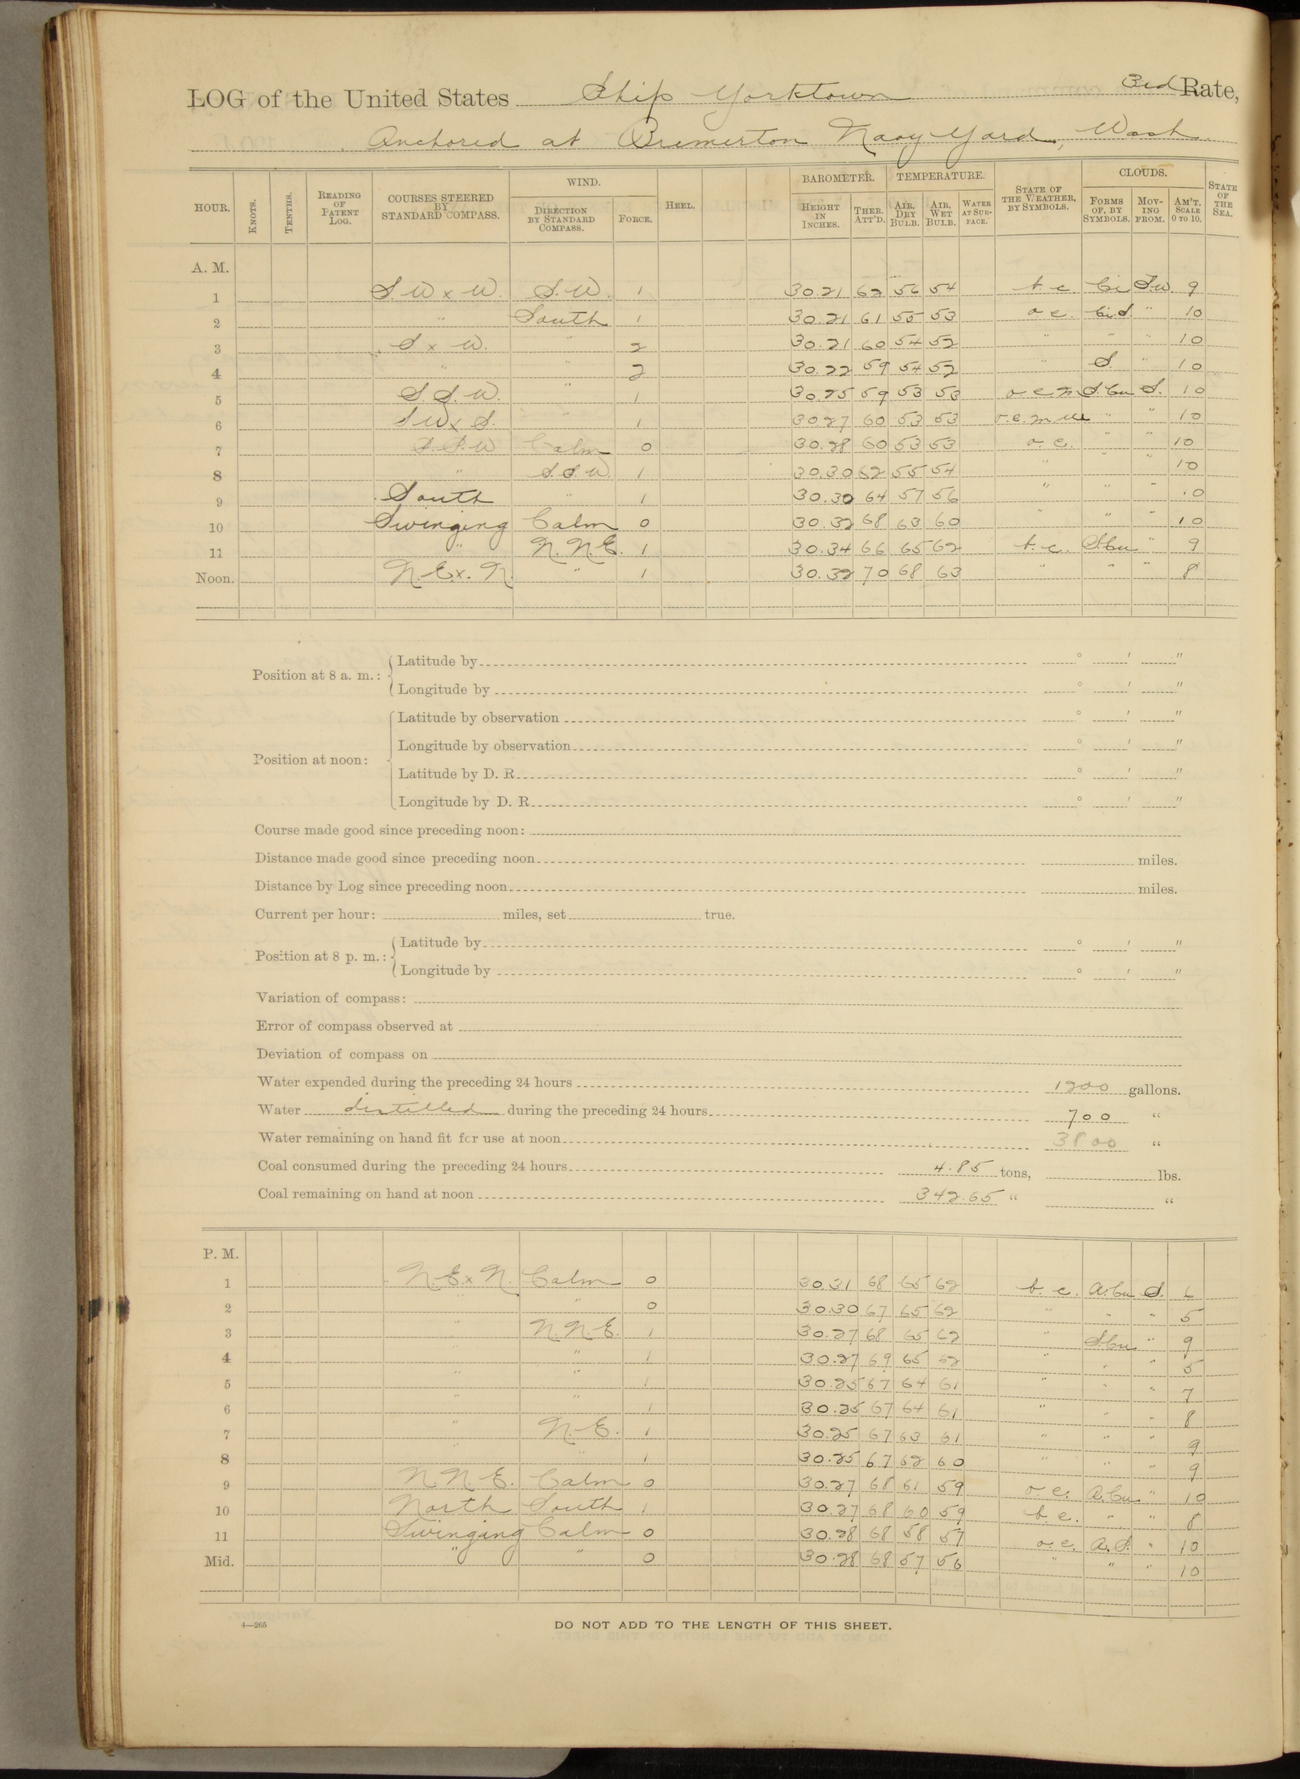 LOG of the United States Ship Yorktown 3rd Rate,
Anchored at Bremerton Navy Yard, Wash.
HOUR. KNOTS. TENTHS. READING OF PATENT LOG. COURSES STEERED BY STANDARD COMPASS. WIND. DIRECTION BY STANDARD COMPASS. FORCE. HEEL. BAROMETER. HEIGHT IN INCHES. THER. ATT'D. TEMPERATURE. AIR, DRY BULB. AIR, WET BULB. WATER AT SURFACE. STATE OF THE WEATHER, BY SYMBOLS. CLOUDS. FORMS OF, BY SYMBOLS. MOVING FROM. AM'T. SCALE 0 TO 10. STATE OF THE SEA.
A. M.
1 S W x W. S. W. 1 30.21 62 56 54 b. c. Ci S.W. 9
2 " South 1 30.21 61 55 53 o c. Ci.S. " 10
3 S x W. " 2 30.21 60 54 52 " " " 10
4 " " 2 30.22 59 54 52 " S. " 10
5 S. S. W. " 1 30.25 59 53 53 o c m S. Cu S. 10
6 S W x S. " 1 30.27 60 53 53 o. c. m " " 10
7 S. S. W Calm 0 30.28 60 53 53 o. c. " " 10
8 " S. S. W. 1 30.30 62 55 54 " " " 10
9 South " 1 30.30 64 57 56 " " " 10
10 Swinging Calm 0 30.32 68 63 60 " " " 10
11 " N. N. E. 1 30.34 66 65 62 b. c. S. Cu " 9
Noon. N. E. x. N. " 1 30.32 70 68 63 " " " 8
Position at 8 a. m.: Latitude by ° ' "
Longitude by ° ' "
Position at noon: Latitude by observation ° ' "
Longitude by observation ° ' "
Latitude by D. R. ° ' "
Longitude by D. R. ° ' "
Course made good since preceding noon:
Distance made good since preceding noon miles.
Distance by Log since preceding noon miles.
Current per hour: miles, set true.
Position at 8 p. m.: Latitude by ° ' "
Longitude by ° ' "
Variation of compass:
Error of compass observed at
Deviation of compass on
Water expended during the preceding 24 hours 1200 gallons.
Water distilled during the preceding 24 hours 700 "
Water remaining on hand fit for use at noon 3800 "
Coal consumed during the preceding 24 hours 4.85 tons, lbs.
Coal remaining on hand at noon 342.65 " "
P. M.
1 N. E x N. Calm 0 30.31 68 65 62 b. c. A. Cu S. 6
2 " " 0 30.30 67 65 62 " " " 5
3 " N. N. E. 1 30.27 68 65 62 " S. Cu " 9
4 " " 1 30.27 69 65 62 " " " 5
5 " " 1 30.25 67 64 61 " " " 7
6 " " 1 30.25 67 64 61 " " " 8
7 " N. E. 1 30.25 67 63 61 " " " 9
8 " " 1 30.25 67 62 60 " " " 9
9 N N E. Calm 0 30.27 68 61 59 o. c. A. Cu " 10
10 North South 1 30.27 68 60 59 b. c. " " 8
11 Swinging Calm 0 30.28 68 58 57 o. c. A. S. " 10
Mid. " " 0 30.28 68 57 56 " " " 10
4—265
DO NOT ADD TO THE LENGTH OF THIS SHEET.